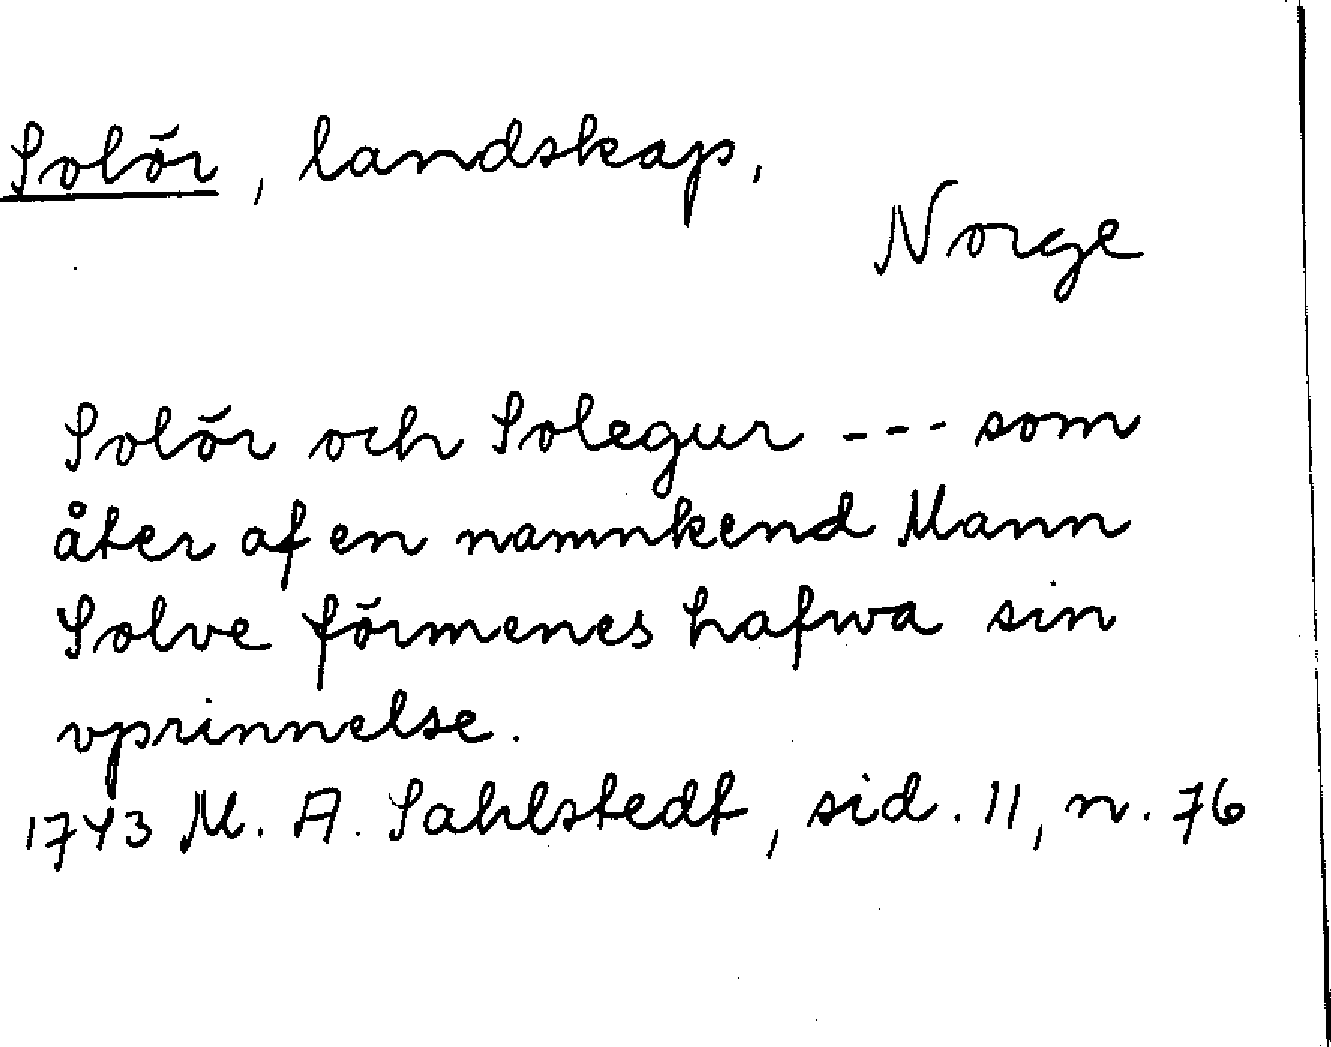 Solör, landskap,
Norge
Solör och Solegur --- som
åter af en namnkend Mann
Solve förmenes hafwa sin
vprinnelse.
1743 M. A. Sahlstedt, sid. 11, n. 76